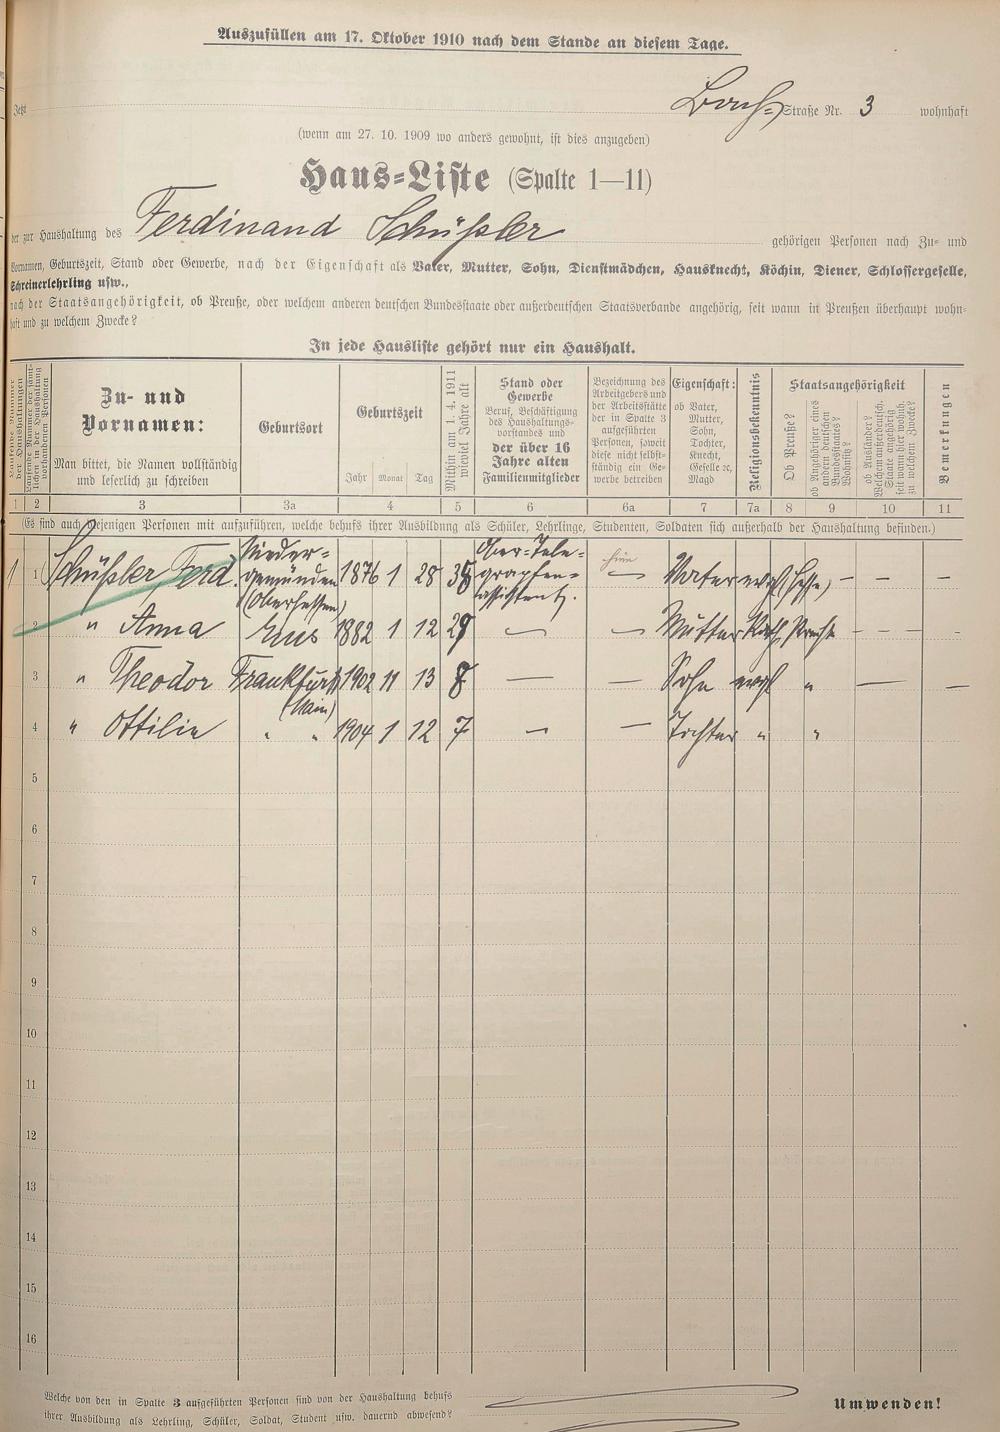 Auszufüllen am 17. Oktober 1910 nach dem Stande an diesem Tage.
Jetzt Straße Nr. 3 wohnhaft
(wenn am 27. 10. 1909 wo anders gewohnt, ist dies anzugeben)
Haus-Liste (Spalte 1—11)
der zur Haushaltung des Ferdinand Schüßler gehörigen Personen nach Zu- und
Vornamen, Geburtszeit, Stand oder Gewerbe, nach der Eigenschaft als Vater, Mutter, Sohn, Dienstmädchen, Hausknecht, Köchin, Diener, Schlossergeselle,
Schreinerlehrling usw.,
nach der Staatsangehörigkeit, ob Preuße, oder welchem anderen deutschen Bundesstaate oder außerdeutschen Staatsverbande angehörig, seit wann in Preußen überhaupt wohn-
haft und zu welchem Zwecke?
In jede Hausliste gehört nur ein Haushalt.
Laufende Nummer
der Haushaltungen
Laufende Nummer der sämt-
lichen in der Haushaltung
vorhandenen Personen
Zu- und
Vornamen:
Man bittet, die Namen vollständig
und leserlich zu schreiben
Geburtsort
Geburtszeit
Jahr Monat Tag
Mithin am 1. 4. 1911
wieviel Jahre alt
Stand oder
Gewerbe
Beruf, Beschäftigung
des Haushaltungs-
vorstandes und
der über 16
Jahre alten
Familienmitglieder
Bezeichnung des
Arbeitgebers und
der Arbeitsstätte
der in Spalte 3
aufgeführten
Personen, soweit
diese nicht selbst-
ständig ein Ge-
werbe betreiben
Eigenschaft:
ob Vater,
Mutter,
Sohn,
Tochter,
Knecht,
Geselle ꝛc,
Magd
Religionsbekenntnis
Staatsangehörigkeit
Ob Preuße?
ob Angehöriger eines
andern deutschen
Bundesstaates?
Wohnitz?
ob Ausländer?
Welchem außerdeutsch.
Staate angehörig
seit wann hier wohnh.
zu welchem Zwecke?
Bemerkungen
1 2 3 3a 4 5 6 6a 7 7a 8 9 10 11
(Es sind auch diejenigen Personen mit aufzuführen, welche behufs ihrer Ausbildung als Schüler, Lehrlinge, Studenten, Soldaten sich außerhalb der Haushaltung befinden.)
1 1 Schüßler Ferd. Nieder-
gemünden
(Oberhessen) 1876 1 28 35 Ober-Tele-
graphen-
assistent — Vater evgl (Hesse) — — —
2 " Anna Ems 1882 1 12 29 — — Mutter Kath. Preuße — — — -
3 " Theodor Frankfurt
(Main) 1902 11 13 8 — — Sohn evgl " — —
4 " Ottilie " " 1904 1 12 7 — — Tochter " "
5
6
7
8
9
10
11
12
13
14
15
16
Welche von den in Spalte 3 aufgeführten Personen sind von der Haushaltung behufs
ihrer Ausbildung als Lehrling, Schüler, Soldat, Student usw. dauernd abwesend?
Umwenden!